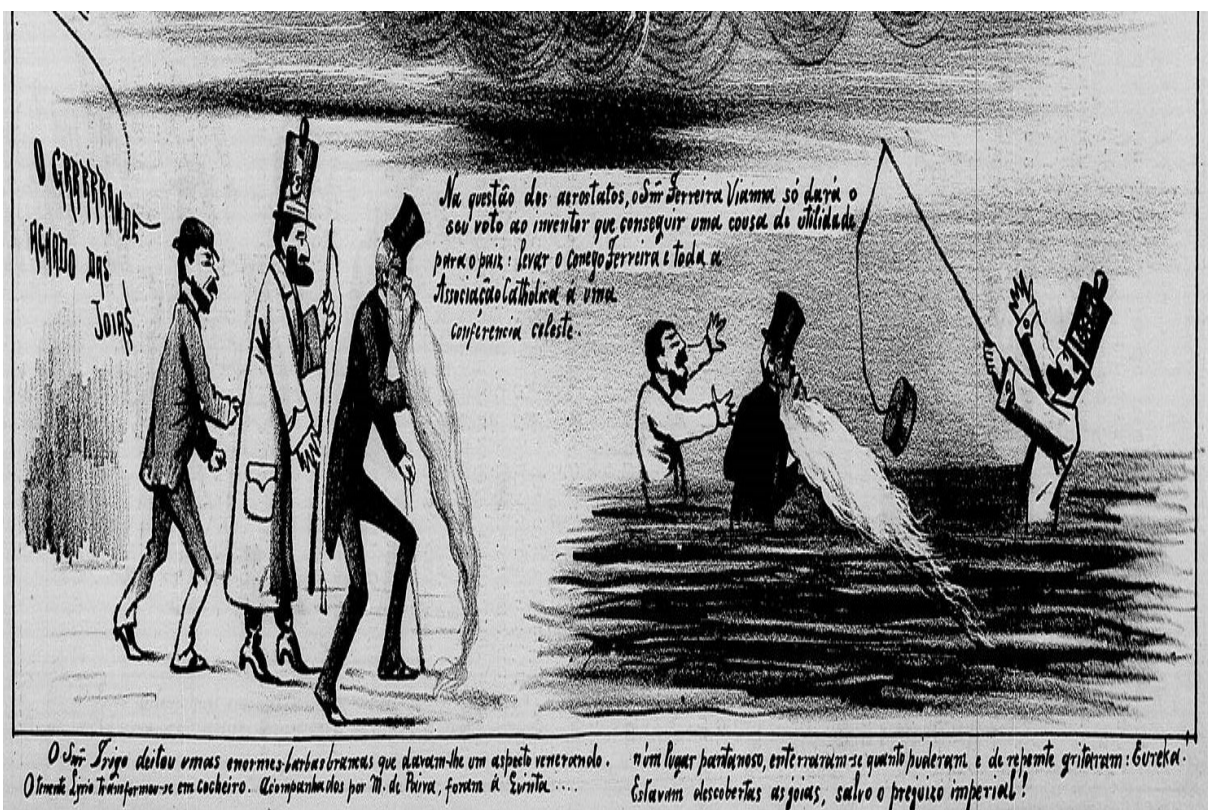 O GRRRRRANDE
ACHADO DAS
JOIAS
Na questão dos aerostatos, o Snr Ferreira Vianna só dará o
seu voto ao inventor que conseguir uma cousa de utilidade
para o paiz: levar o Conego Ferreira e toda a
Associação Catholica á uma
Conferencia celeste.
O Snr Trigo deitou umas enormes barbas brancas que davam-lhe um aspecto venerando.
O tenente Lyrio transformou-se em cocheiro. Acompanhados por M. de Paiva, foram á
n'um lugar pantanoso, enterraram-se quanto puderam e de repente gritaram: Eureka.
Estavam descobertas as joias, salvo o prejuizo imperial!